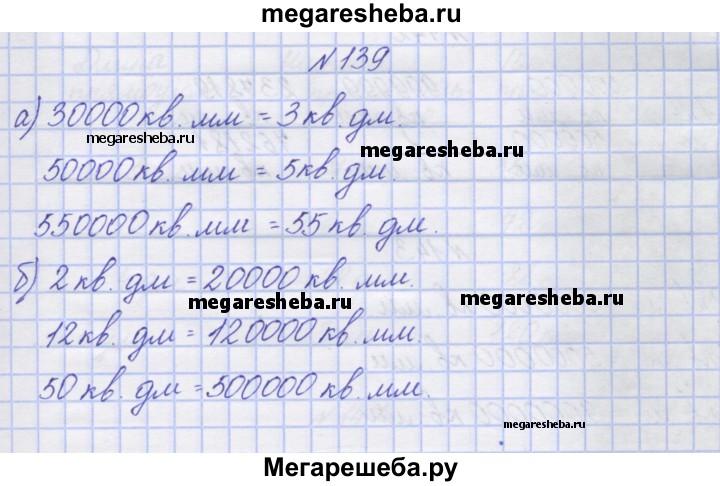 megaresheba.ru
№ 139
а) 30000 кв. мм = 3 кв. дм.
megaresheba.ru
megaresheba.ru
50000 кв. мм = 5 кв. дм.
550000 кв. мм = 55 кв. дм.
б) 2 кв. дм = 20000 кв. мм.
megaresheba.ru
megaresheba.ru
12 кв. дм = 120000 кв. мм.
50 кв. дм = 500000 кв. мм.
megaresheba.ru
Мегарешеба.ру